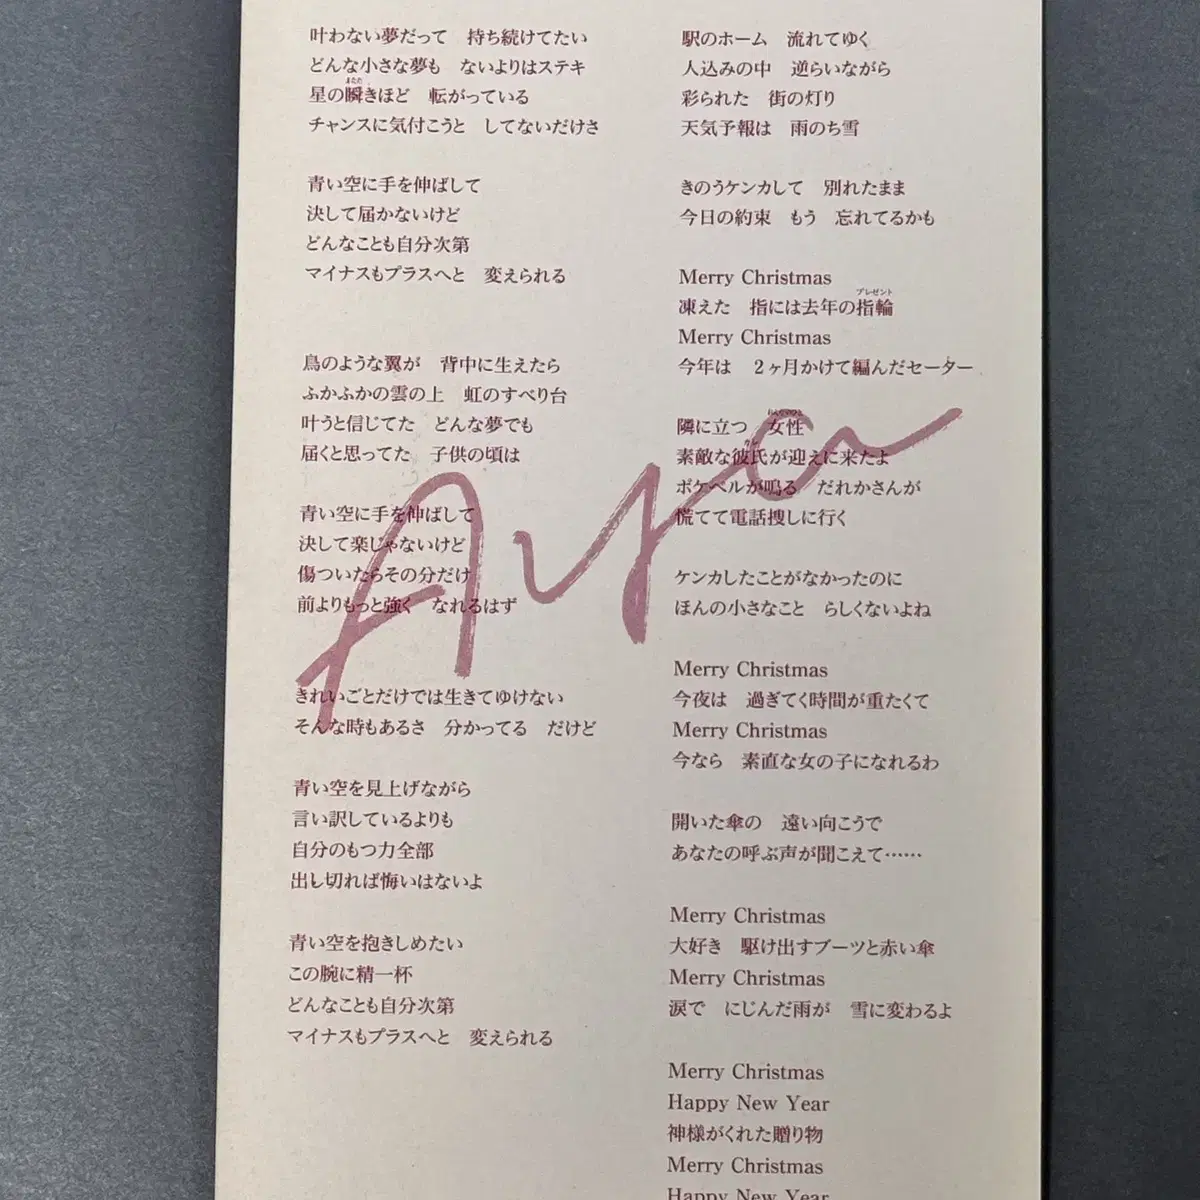 叶わない夢だって　持ち続けてたい
どんな小さな夢も　ないよりはステキ
星の瞬きほど　転がっている
チャンスに気付こうと　してないだけさ
青い空に手を伸ばして
決して届かないけど
どんなことも自分次第
マイナスもプラスへと　変えられる
鳥のような翼が　背中に生えたら
ふかふかの雲の上　虹のすべり台
叶うと信じてた　どんな夢でも
届くと思ってた　子供の頃は
青い空に手を伸ばして
決して楽じゃないけど
傷ついたらその分だけ
前よりもっと強く　なれるはず
きれいごとだけでは生きてゆけない
そんな時もあるさ　分かってる　だけど
青い空を見上げながら
言い訳しているよりも
自分のもつ力全部
出し切れば悔いはないよ
青い空を抱きしめたい
この腕に精一杯
どんなことも自分次第
マイナスもプラスへと　変えられる
駅のホーム　流れてゆく
人込みの中　逆らいながら
彩られた　街の灯り
天気予報は　雨のち雪
きのうケンカして　別れたまま
今日の約束　もう　忘れてるかも
Merry Christmas
プレゼント
凍えた　指には去年の指輪
Merry Christmas
今年は　２ヶ月かけて編んだセーター
隣に立つ　女性
素敵な彼氏が迎えに来たよ
ポケベルが鳴る　だれかさんが
慌てて電話捜しに行く
ケンカしたことがなかったのに
ほんの小さなこと　らしくないよね
Merry Christmas
今夜は　過ぎてく時間が重たくて
Merry Christmas
今なら　素直な女の子になれるわ
開いた傘の　遠い向こうで
あなたの呼ぶ声が聞こえて……
Merry Christmas
大好き　駆け出すブーツと赤い傘
Merry Christmas
涙で　にじんだ雨が　雪に変わるよ
Merry Christmas
Happy New Year
神様がくれた贈り物
Merry Christmas
Happy New Year